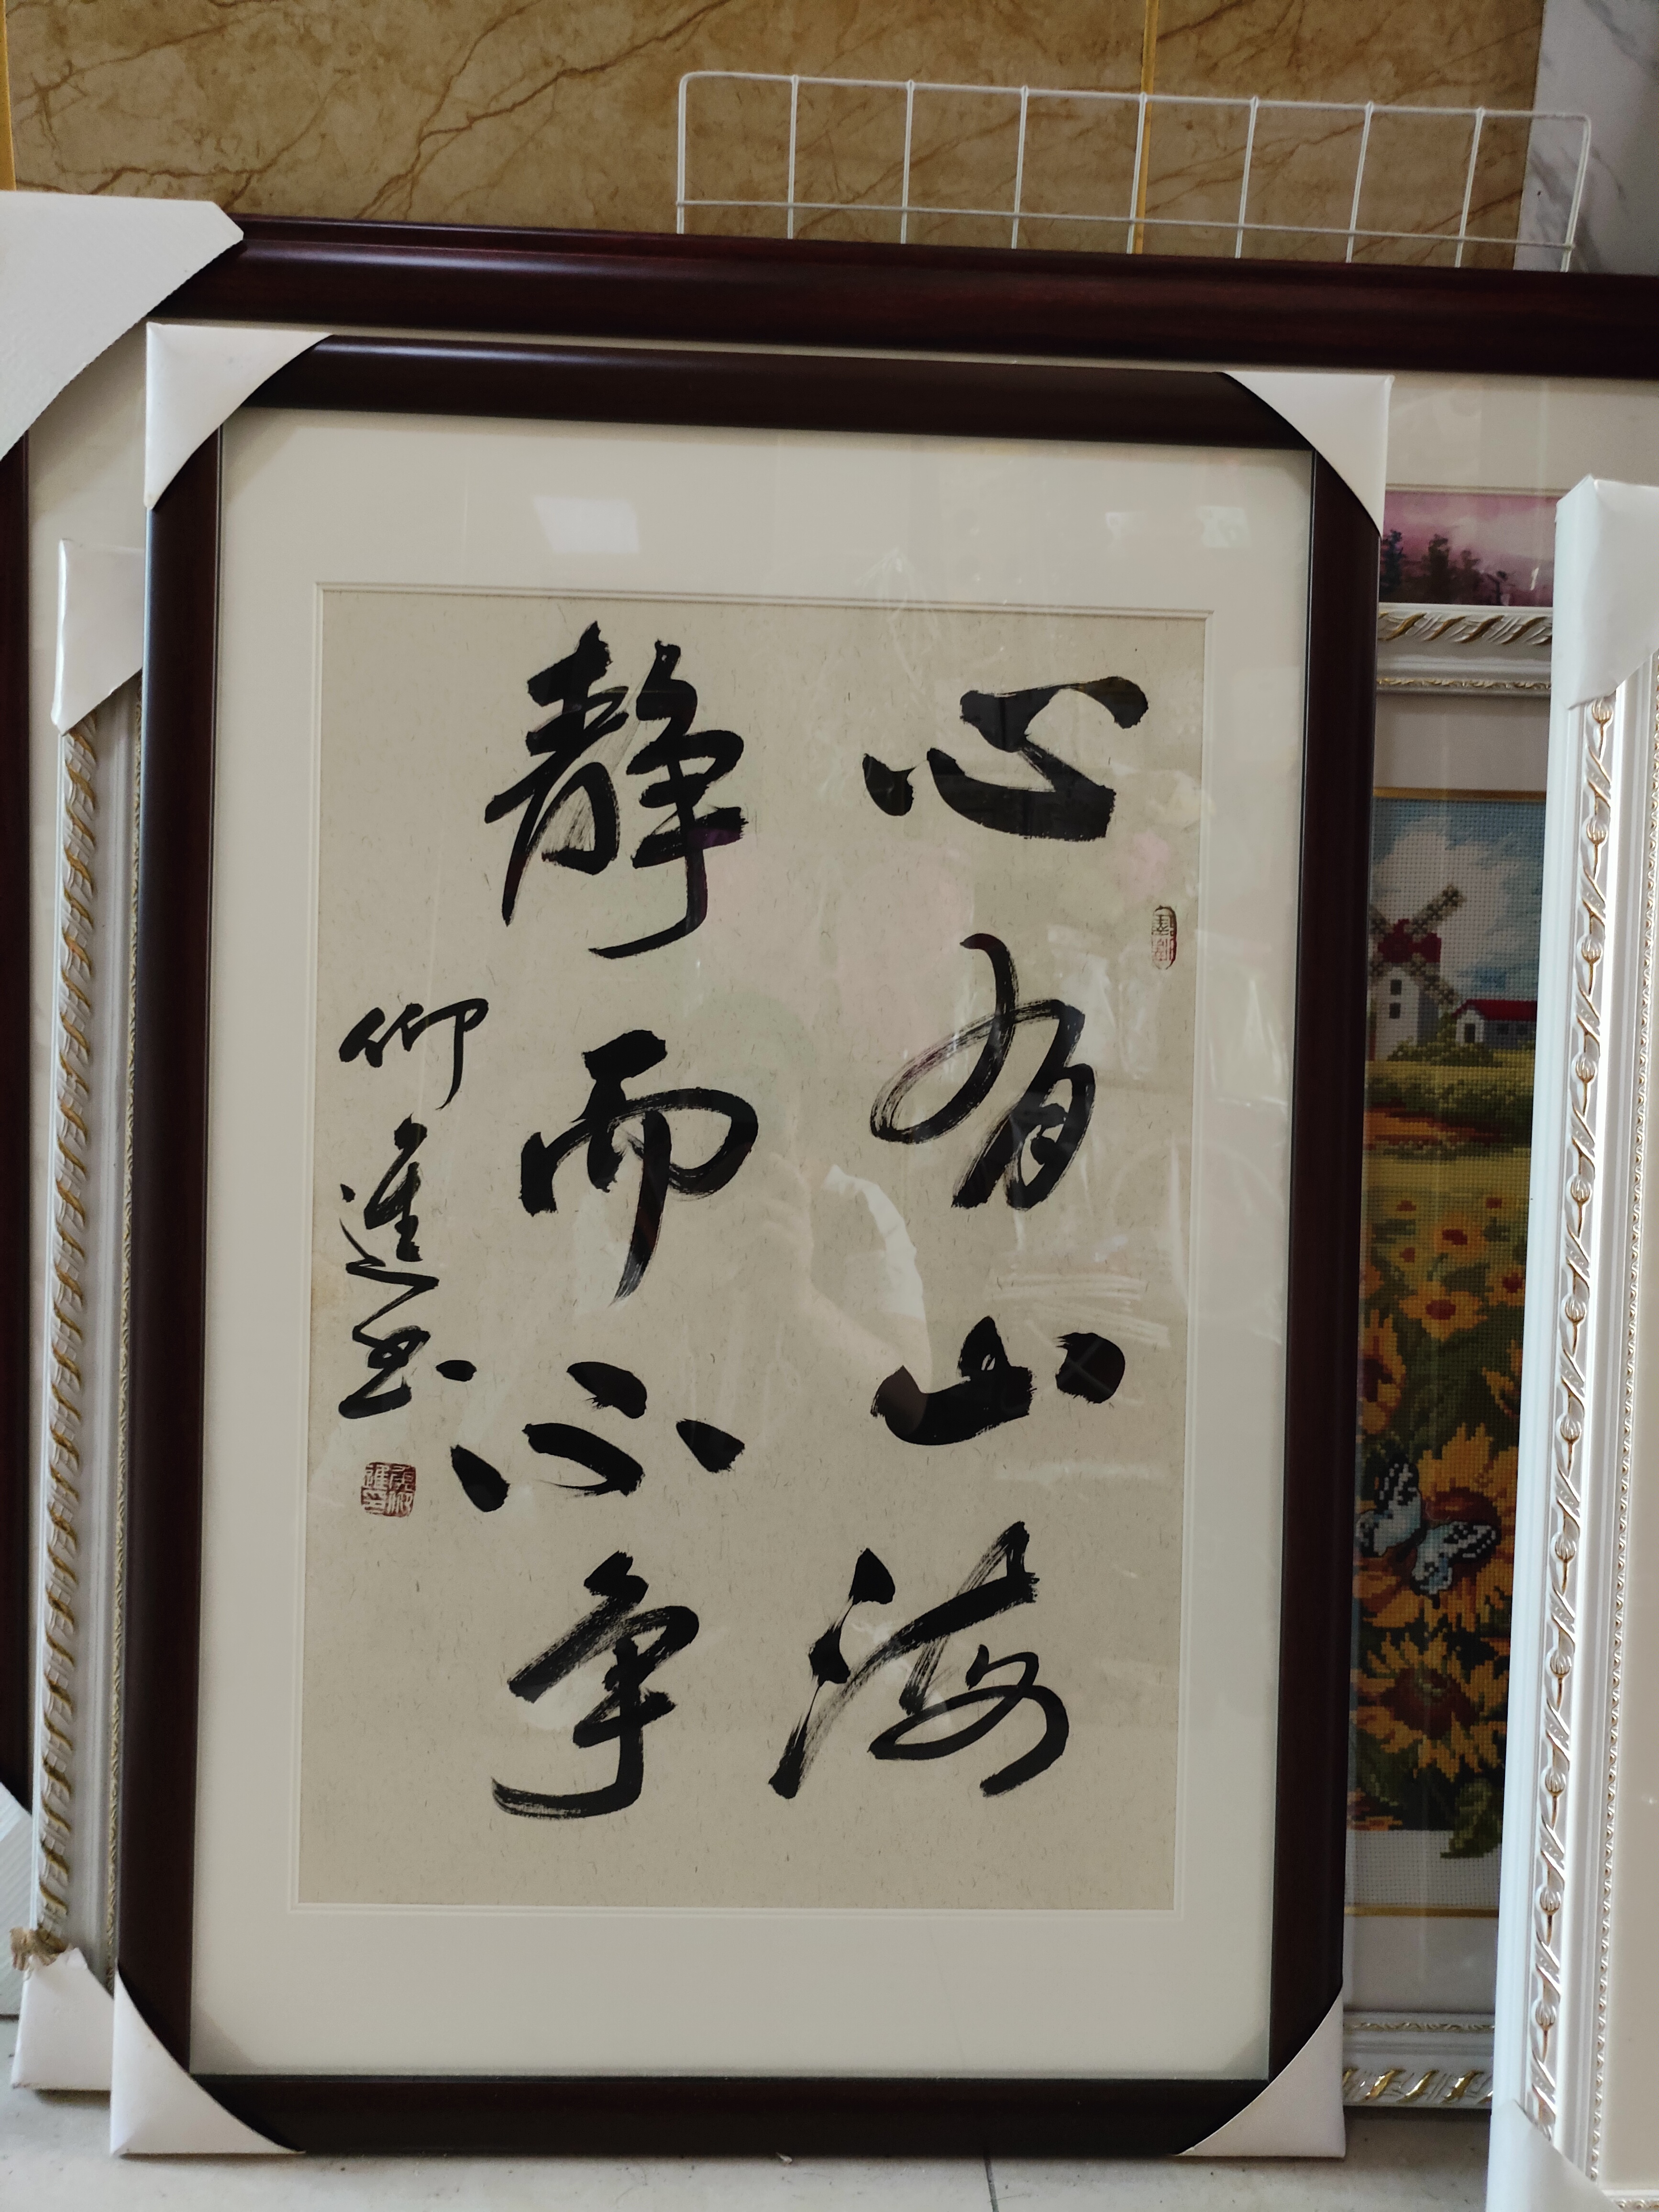 心有山海
静而不争
仰進书